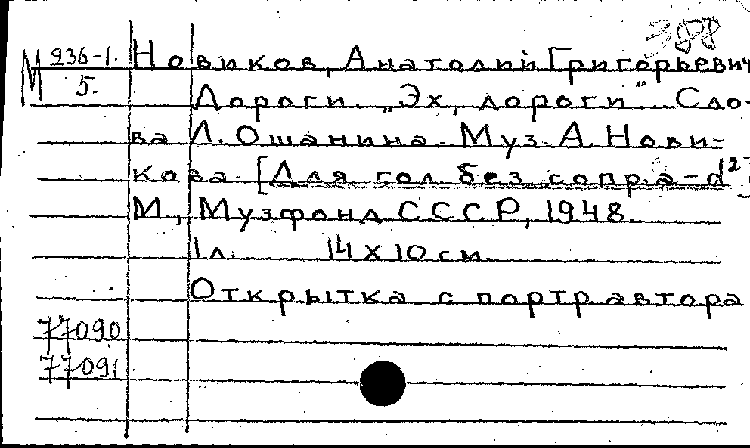 388
М 936-1.
5.
Новиков, Анатолий Григорьевич
Дороги. "Эх, дороги" Сло-
ва Л. Ошанина. Муз. А. Нови-
кова. [Для гол. без сопр. а-d²]
М., Музфонд СССР, 1948.
1 л. 14 х 10 см.
Открытка с портр. автора
77090
77091